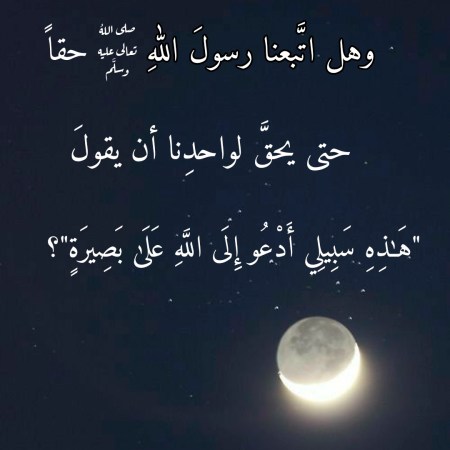 وهل اتَّبعنا رسولَ اللهِ صلى اللهُ تعالى عليه وسلَّم حقاً
حتى يحقَّ لواحدِنا أن يقولَ
"هَـٰذِهِ سَبِيلِي أَدْعُو إِلَى اللَّهِ عَلَىٰ بَصِيرَةٍ"؟